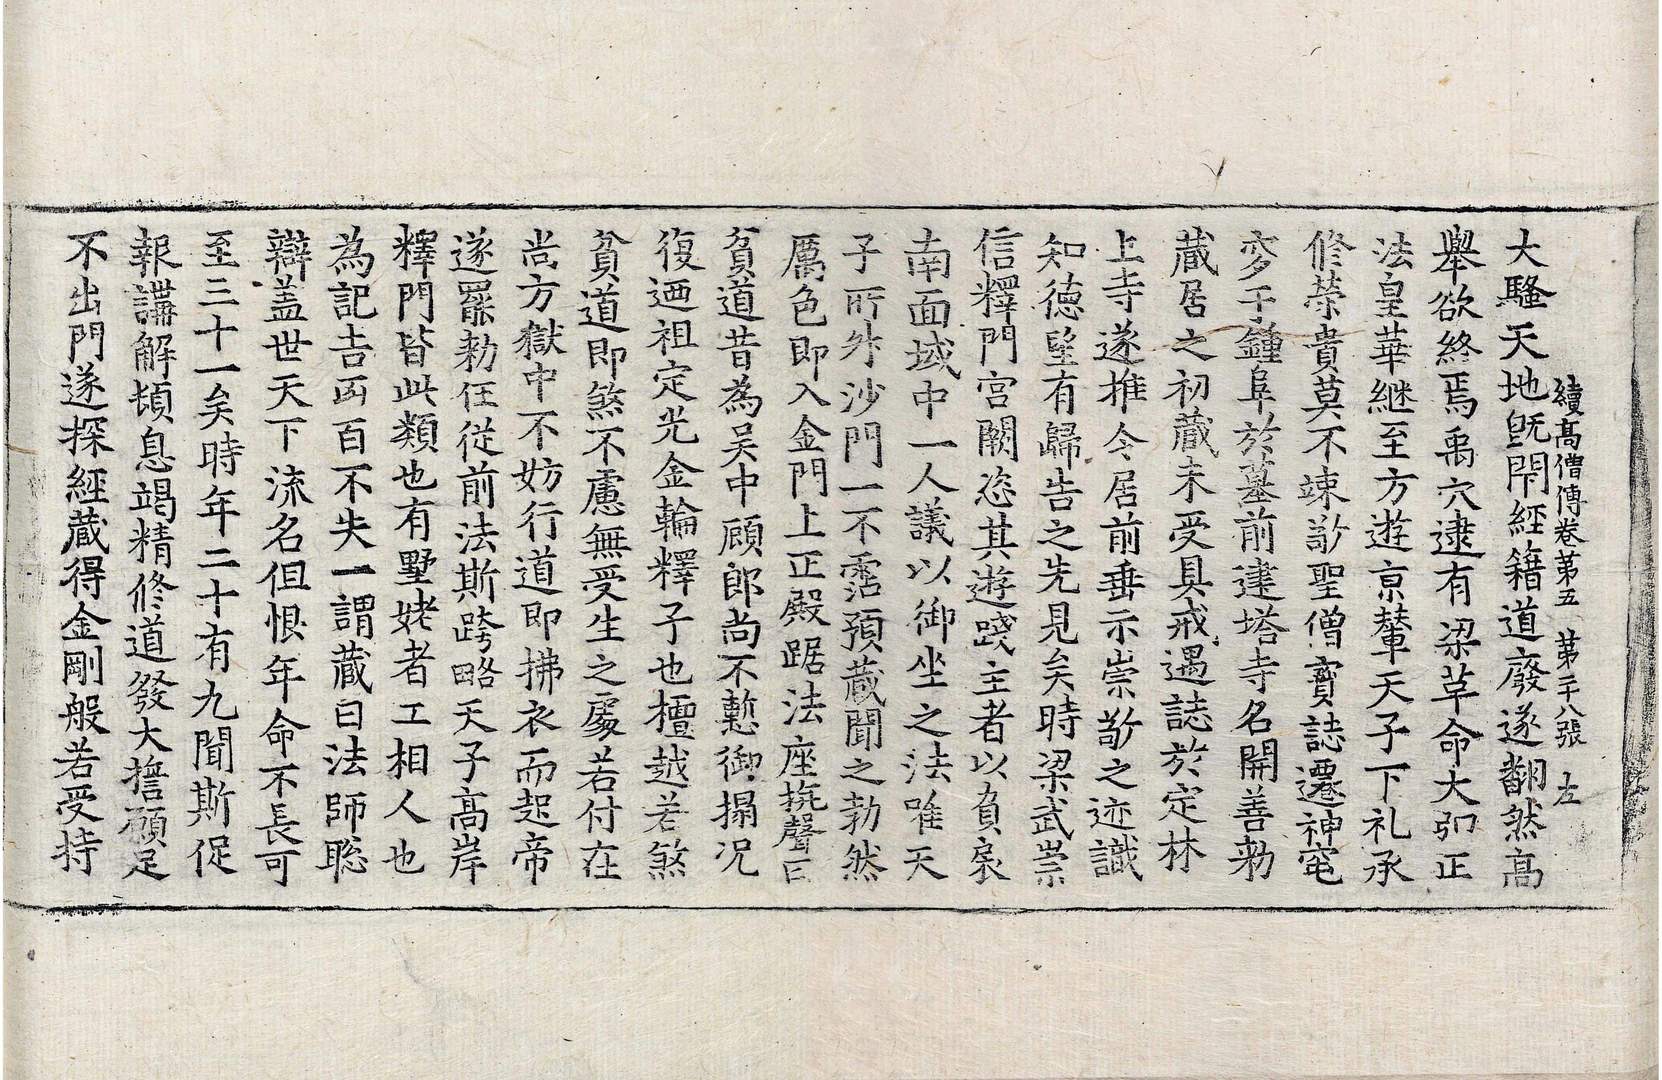 續高僧傳卷第五　第二十八張　左
大騷天地旣閇經籍道廢遂翻然高
舉欲終焉禹穴逮有梁革命大弘正
法皇華継至方遊京輦天子下礼承
修榮貴莫不竦敬聖僧寶誌遷神窀
穸于鍾阜於墓前建塔寺名開善勑
藏居之初藏未受具戒遇誌於定林
上寺遂推令居前垂示崇敬之迹識
知德望有歸告之先見矣時梁武崇
信釋門宮闕恣其遊踐主者以負扆
南面域中一人議以御坐之法唯天
子所升沙門一不霑預藏聞之勃然
厲色即入金門上正殿踞法座抗聲曰
貧道昔為吳中顧郎尚不慙御搨况
復迺祖定光金輪釋子也檀越若煞
貧道即煞不慮無受生之處若付在
尚方獄中不妨行道即拂衣而起帝
遂罷勑任從前法斯跨略天子高岸
釋門皆此類也有墅姥者工相人也
為記吉凶百不失一謂藏曰法師聡
辯盖世天下流名但恨年命不長可
至三十一矣時年二十有九聞斯促
報講解頓息竭精修道發大擔願足
不出門遂探經藏得金剛般若受持